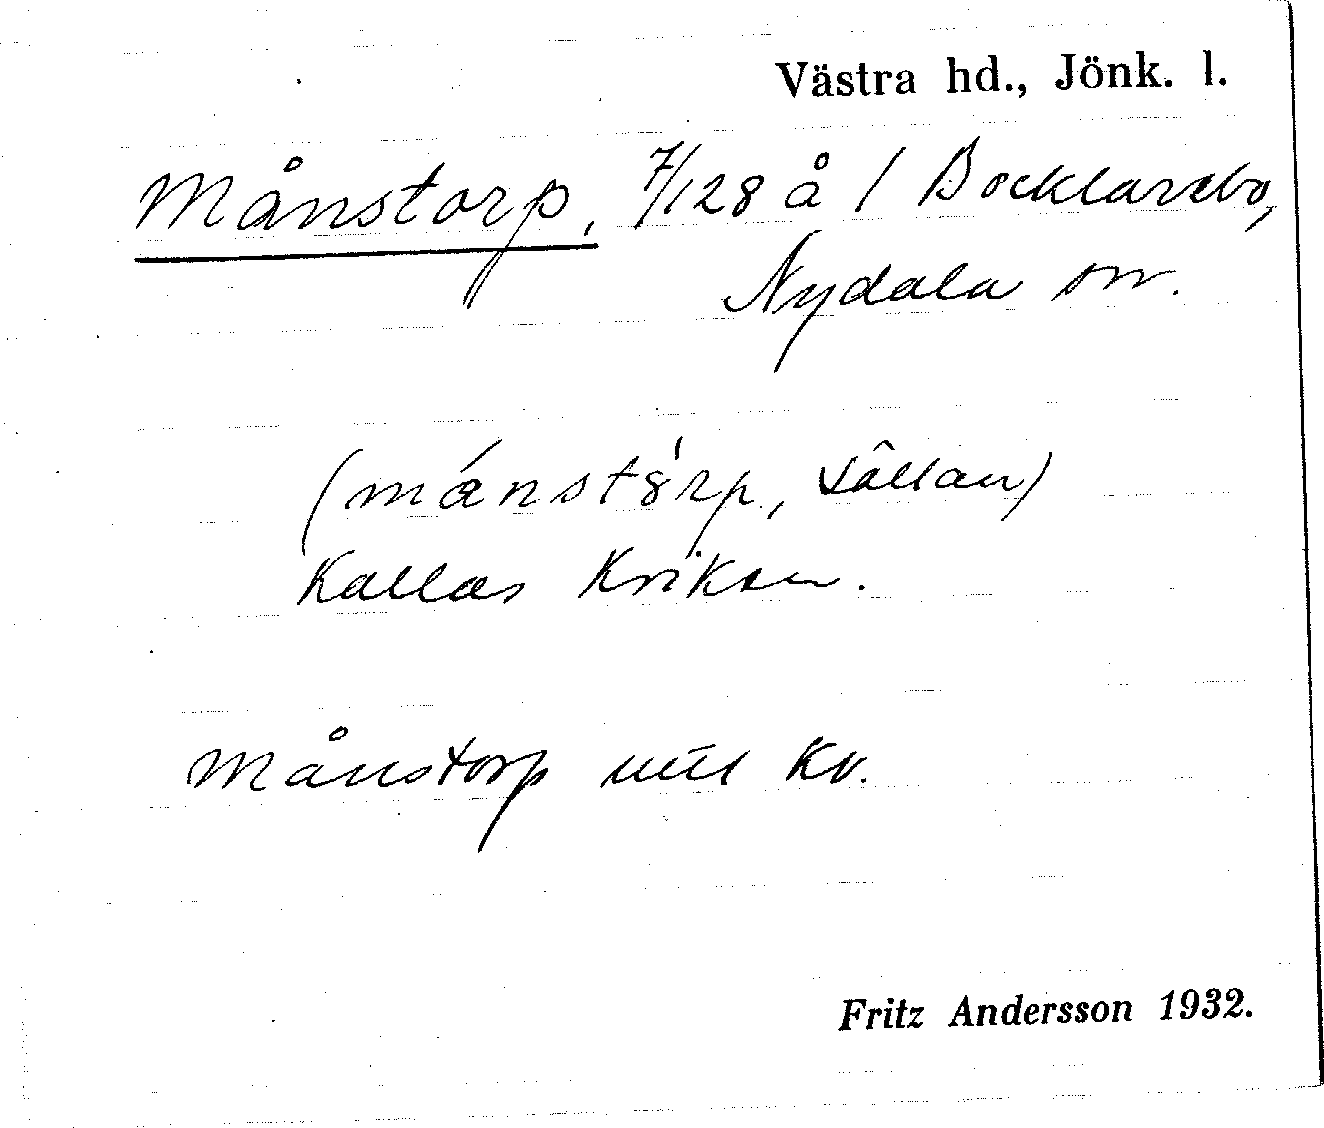 Västra hd., Jönk. l.
Månstorp, 7/128 å 1 Bocklarebo,
Nydala sn.
(månstôrp, sällan)
Kallas Kriken.
Månstorp till Kv.
Fritz Andersson 1932.